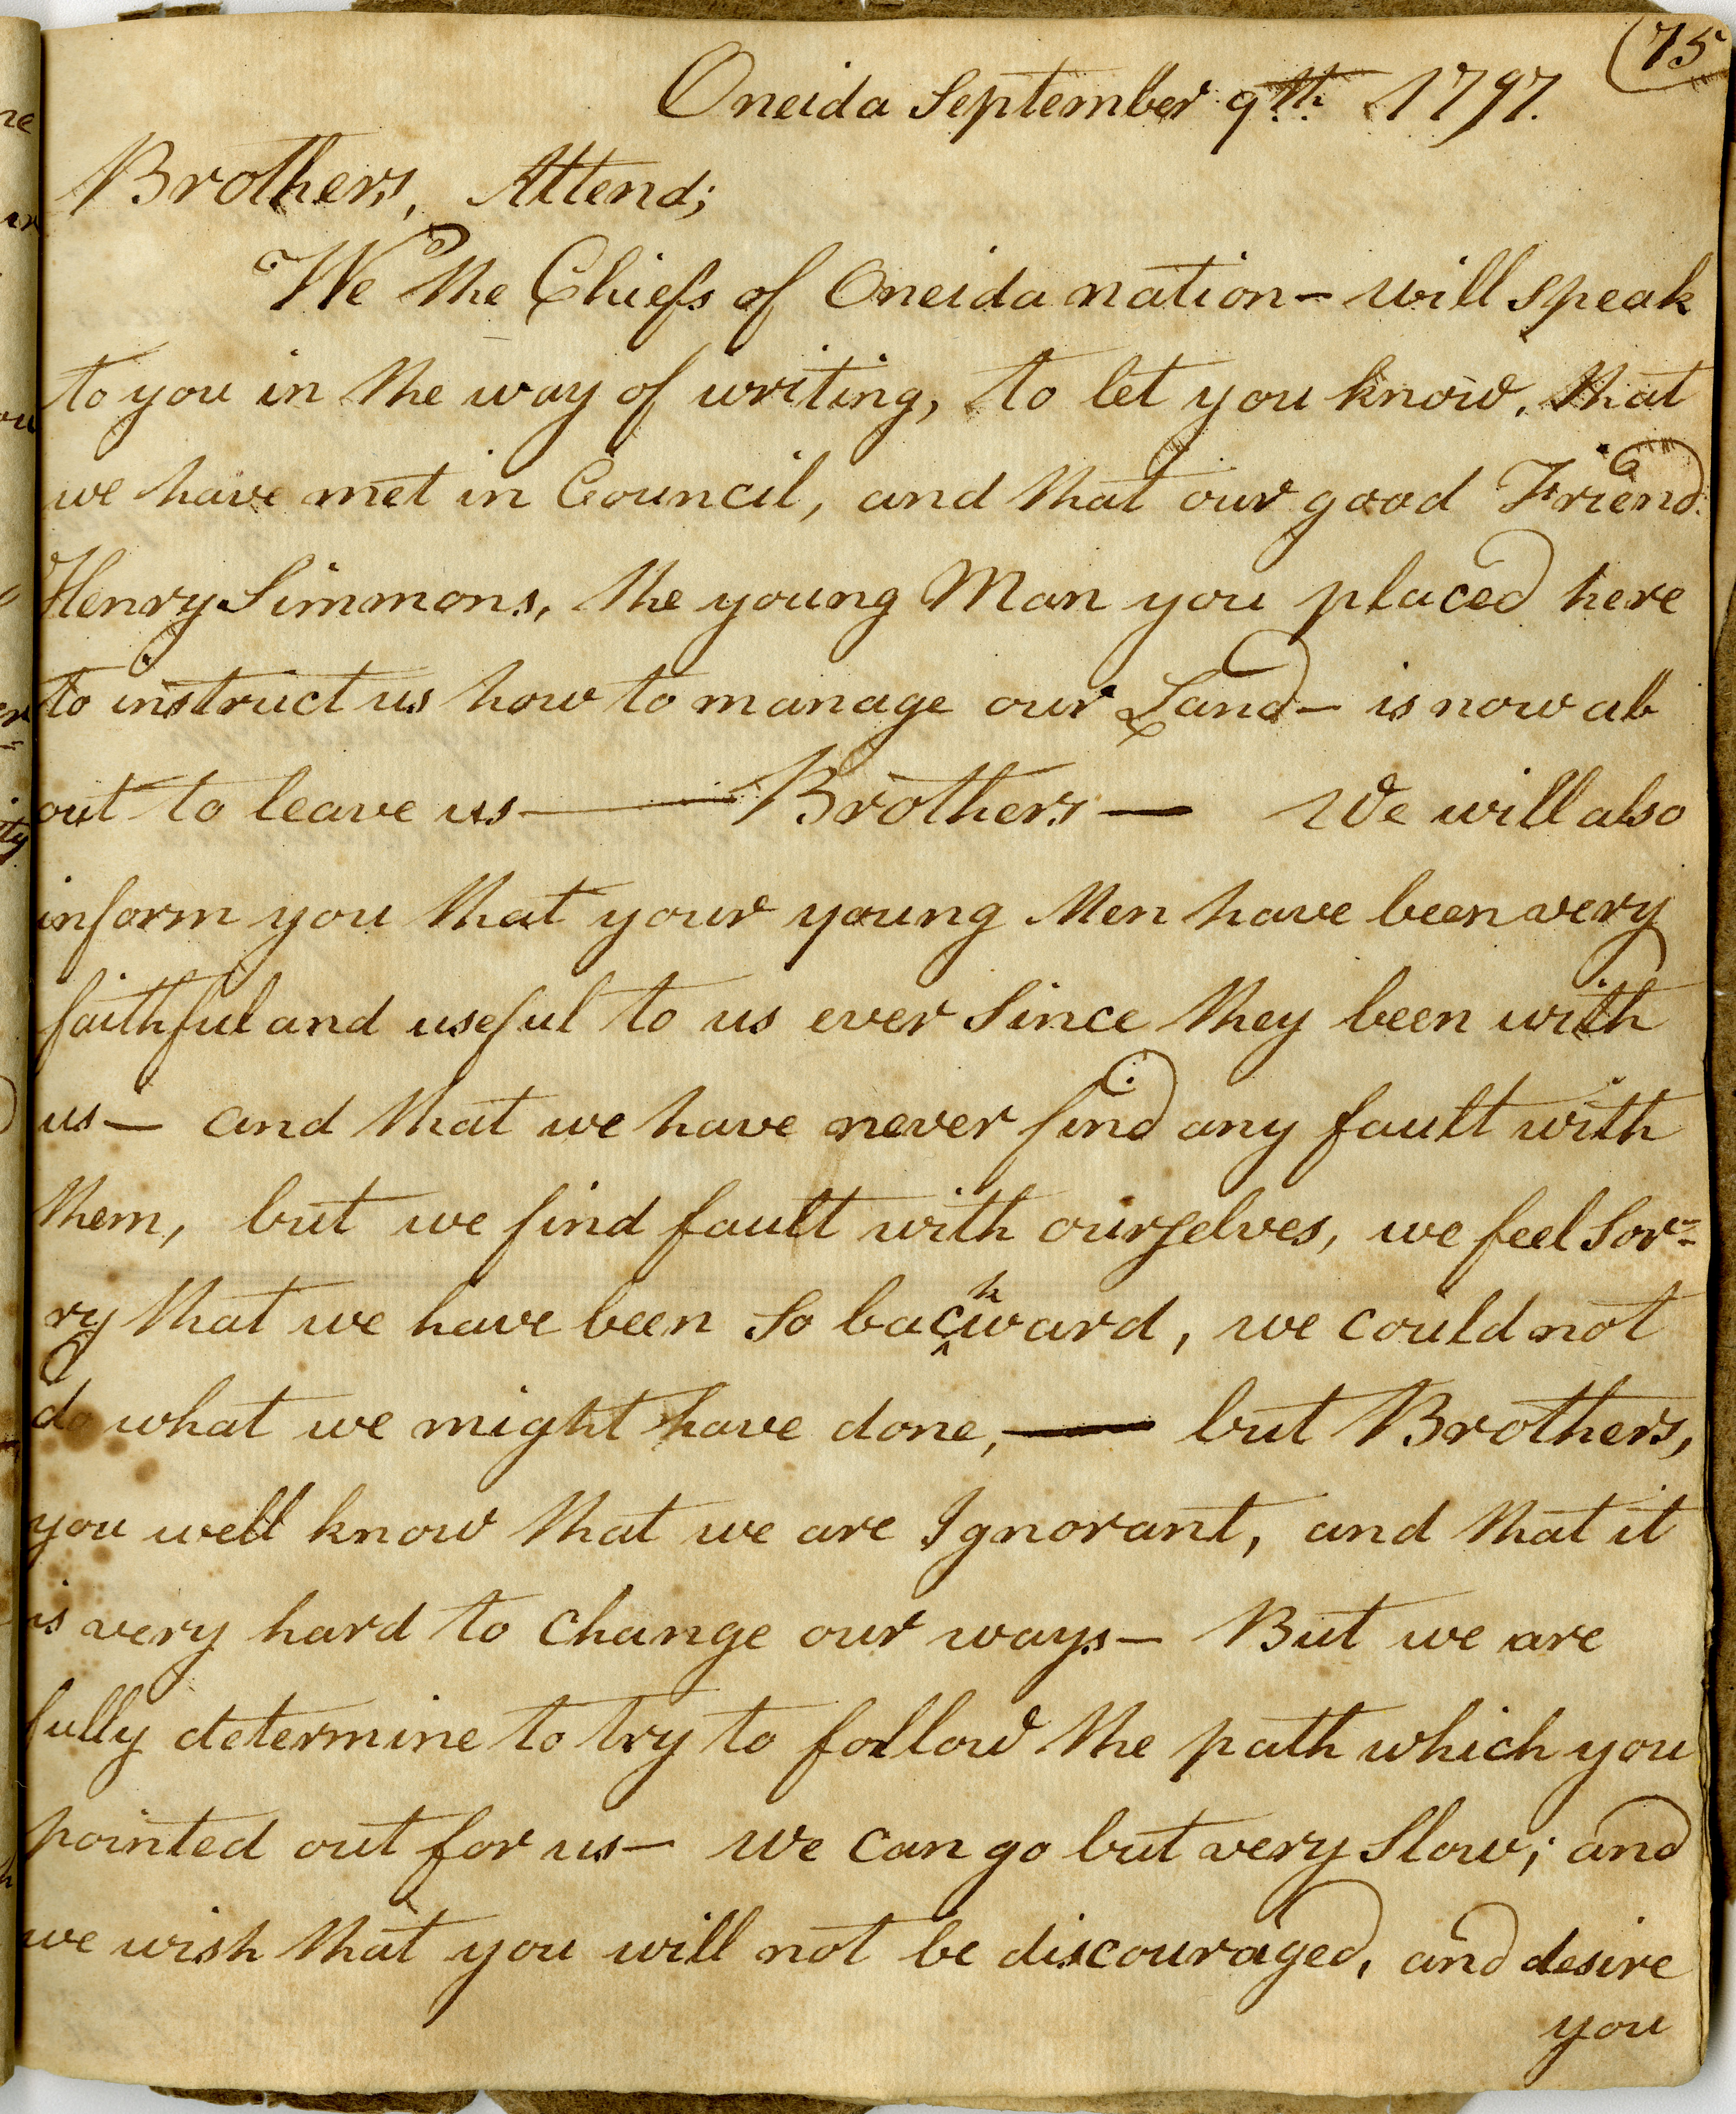 75
Oneida September 9th 1797.
Brothers, Attend;
We the Chiefs of Oneida nation – will speak
to you in the way of writing, to let you know, that
we have met in Council, and that our good Friend
Henry Simmons, the young Man you placed here
to instruct us how to manage our Land – is now ab
out to leave us — Brothers — We will also
inform you that your young Men have been very
faithful and useful to us ever Since they been with
us — and that we have never find any fault with
them, but we find fault with ourselves, we feel Sor=
ry that we have been So backward, we could not
do what we might have done, — but Brothers,
you well know that we are Ignorant, and that it
is very hard to Change our ways — But we are
fully determine to try to follow the path which you
pointed out for us — we can go but very Slow; and
we wish that you will not be discouraged, and desire
you